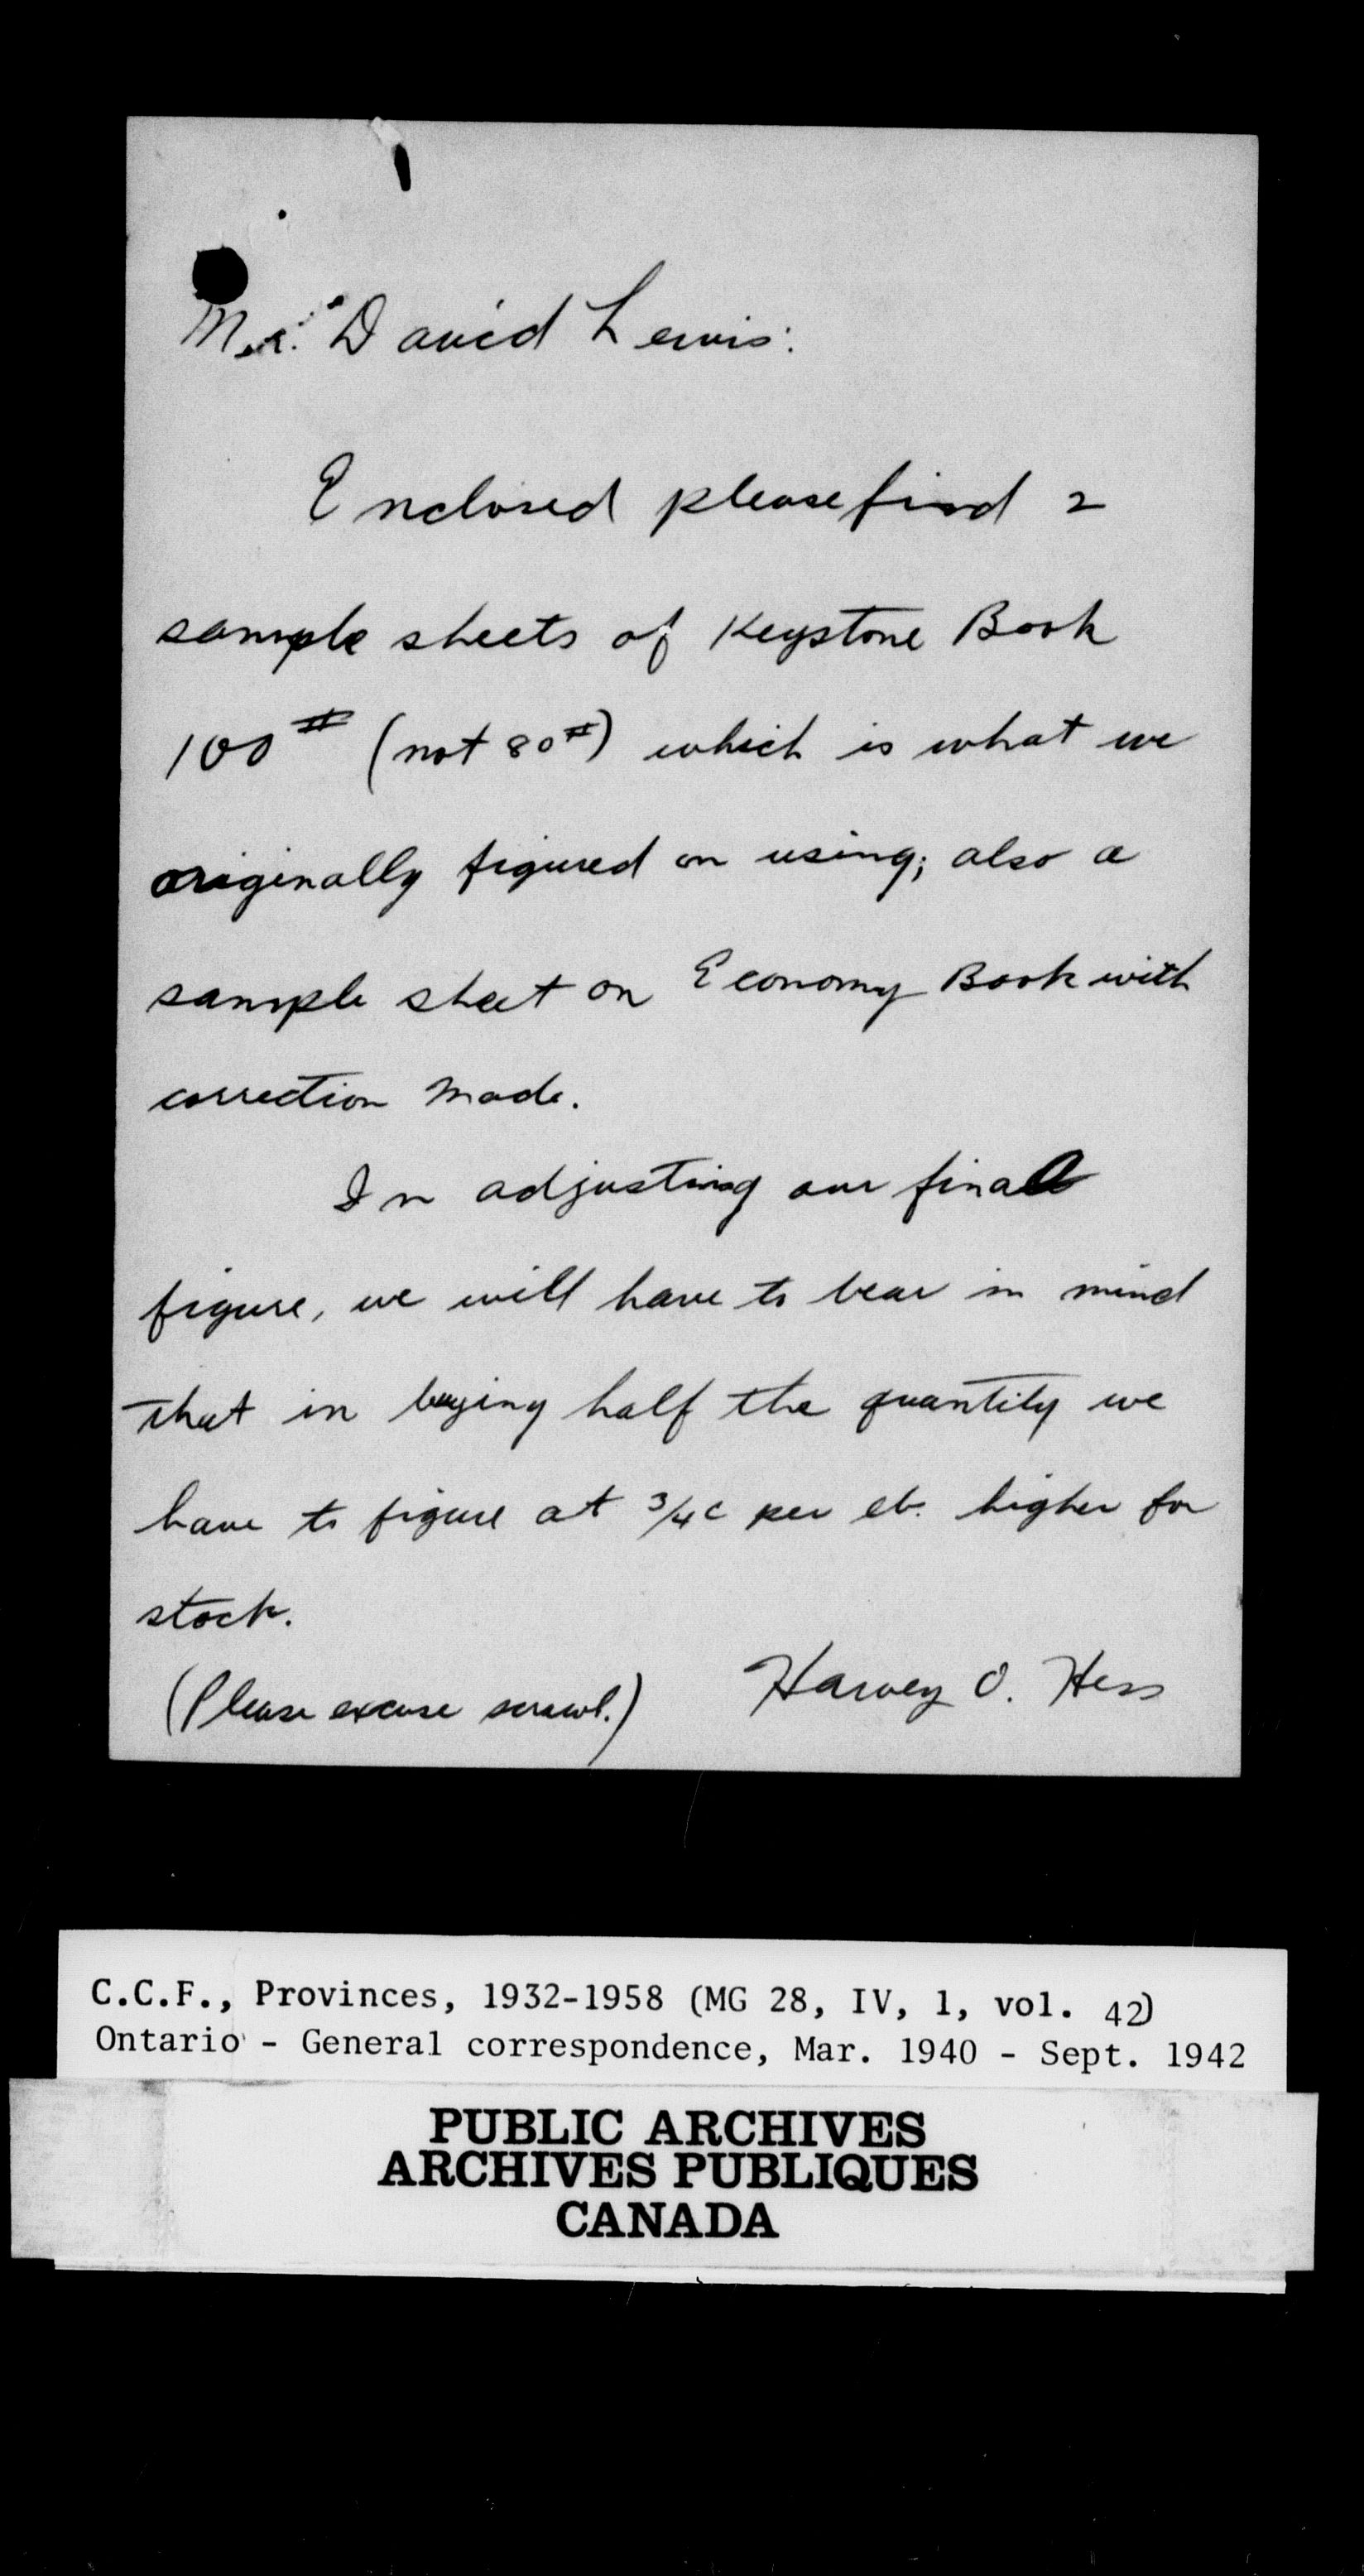 Mr. David Lewis:
Enclosed please find 2
sample sheets of Keystone Book
100# (not 80#) which is what we
originally figured on using; also a
sample sheet on Economy Book with
correction made.
In adjusting our final
figure, we will have to bear in mind
that in buying half the quantity we
have to figure at 3/4c per lb. higher for
stock.
(Please excuse scrawl.) Harvey O. Hess
C.C.F., Provinces, 1932-1958 (MG 28, IV, 1, vol. 42)
Ontario - General correspondence, Mar. 1940 - Sept. 1942
PUBLIC ARCHIVES
ARCHIVES PUBLIQUES
CANADA